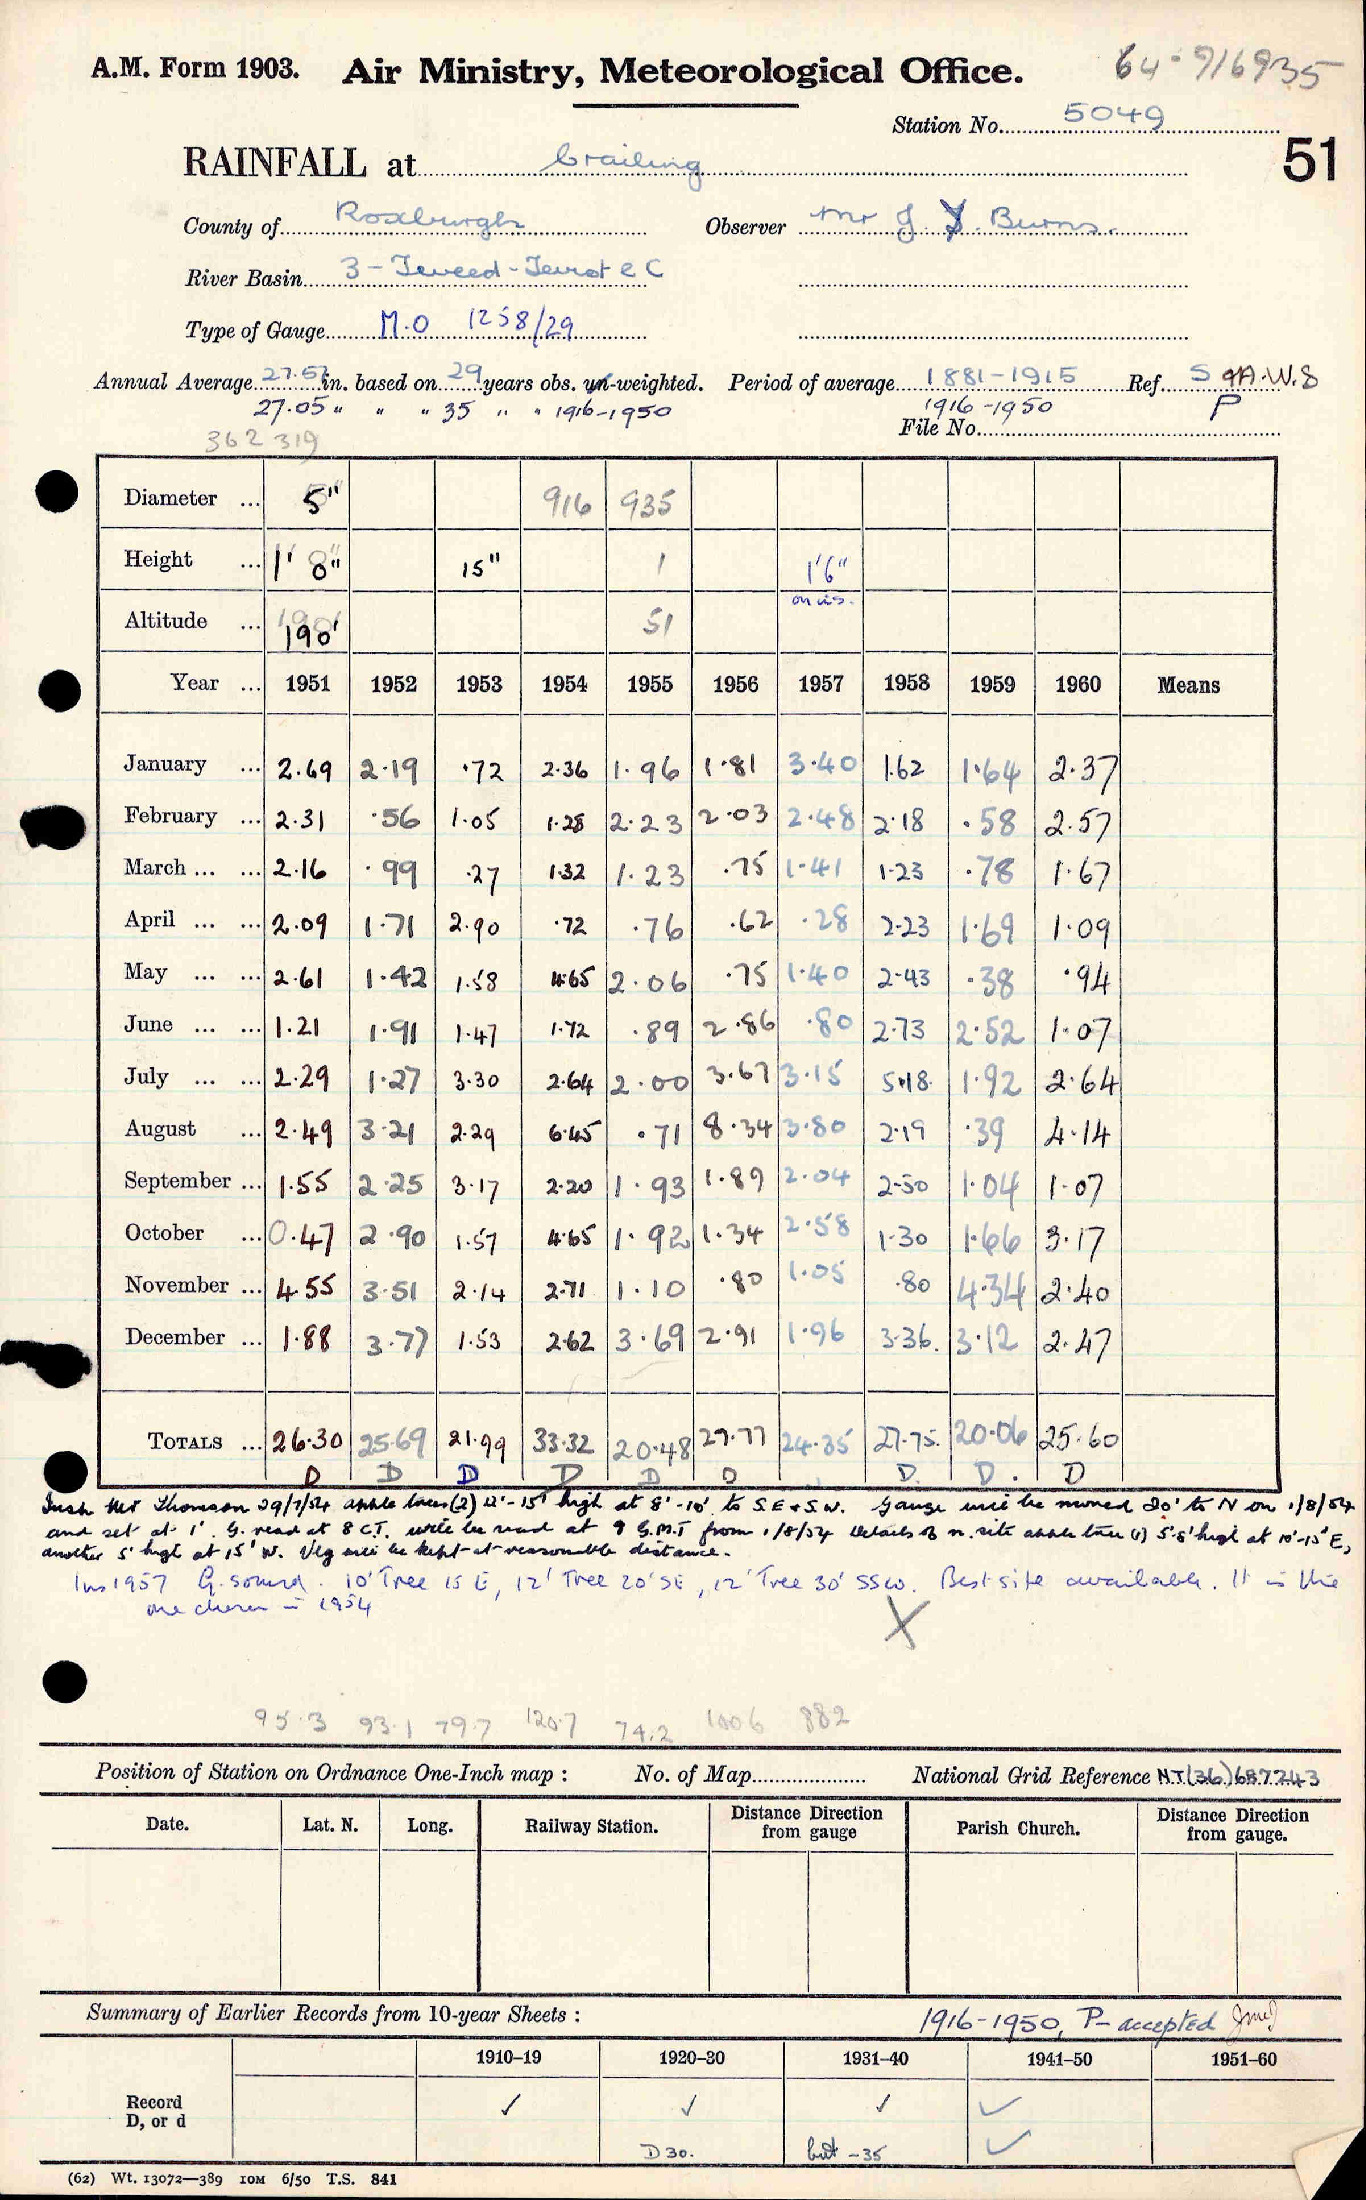 A.M. Form 1903. Air Ministry, Meteorological Office. 64-916935
Station No. 5049
RAINFALL at Crailing 51
County of Roxburgh Observer Mr J. Burns.
River Basin 3 - Tweed - Teviot & C
Type of Gauge M.O 1258/29
Annual Average 27.57 in. based on 29 years obs. un-weighted. Period of average 1881-1915 Ref. S A.W.S
27.05 " " " 35 " " 1916-1950 1916-1950 P
File No.
362 319
Diameter ... 5" 916 935
Height ... 1' 8" 15" 1 1'6"
on ins.
Altitude ... 190' 51
Year ... 1951 1952 1953 1954 1955 1956 1957 1958 1959 1960 Means
January ... 2.69 2.19 .72 2.36 1.96 1.81 3.40 1.62 1.64 2.37
February ... 2.31 .56 1.05 1.28 2.23 2.03 2.48 2.18 .58 2.57
March ... ... 2.16 .99 .27 1.32 1.23 .75 1.41 1.23 .78 1.67
April ... ... 2.09 1.71 2.90 .72 .76 .62 .28 2.23 1.69 1.09
May ... ... 2.61 1.42 1.58 4.65 2.06 .75 1.40 2.43 .38 .94
June ... ... 1.21 1.91 1.47 1.72 .89 2.86 .80 2.73 2.52 1.07
July ... ... 2.29 1.27 3.30 2.64 2.00 3.67 3.15 5.18 1.92 2.64
August ... 2.49 3.21 2.29 6.45 .71 8.34 3.80 2.19 .39 4.14
September ... 1.55 2.25 3.17 2.20 1.93 1.89 2.04 2.50 1.04 1.07
October ... 0.47 2.90 1.57 4.65 1.92 1.34 2.58 1.30 1.66 3.17
November ... 4.55 3.51 2.14 2.71 1.10 .80 1.05 .80 4.34 2.40
December ... 1.88 3.77 1.53 2.62 3.69 2.91 1.96 3.36. 3.12 2.47
TOTALS ... 26.30 25.69 21.99 33.32 20.48 27.77 24.35 27.75. 20.06 25.60
D D D D D D D. D. D
Insp Mr Thomson 29/7/54 apple trees (2) 12'-15' high at 8'-10' to S.E & S.W. Gauge will be moved 20' to N on 1/8/54
and set at 1'. G. read at 8 C.T. will be read at 9 G.M.T from 1/8/54 Details of n. site apple tree (1) 5'-8' high at 10'-15' E,
another 5' high at 15' W. Veg will be kept at reasonable distance.
Ins 1957 G. sound. 10' Tree 15 E, 12' Tree 20' SE, 12' Tree 30' SSW. Best site available. It is the
one chosen in 1954
X
95.3 93.1 79.7 120.7 74.2 100.6 882
Position of Station on Ordnance One-Inch map : No. of Map National Grid Reference N.T.(36) 687243
Date. Lat. N. Long. Railway Station. Distance from gauge Direction Parish Church. Distance from gauge. Direction
Summary of Earlier Records from 10-year Sheets : 1916-1950, P- accepted
1910-19 1920-30 1931-40 1941-50 1951-60
Record ✓ ✓ ✓ ✓
D, or d D 30. but -35 ✓
(62) Wt. 13072—389 10M 6/50 T.S. 841